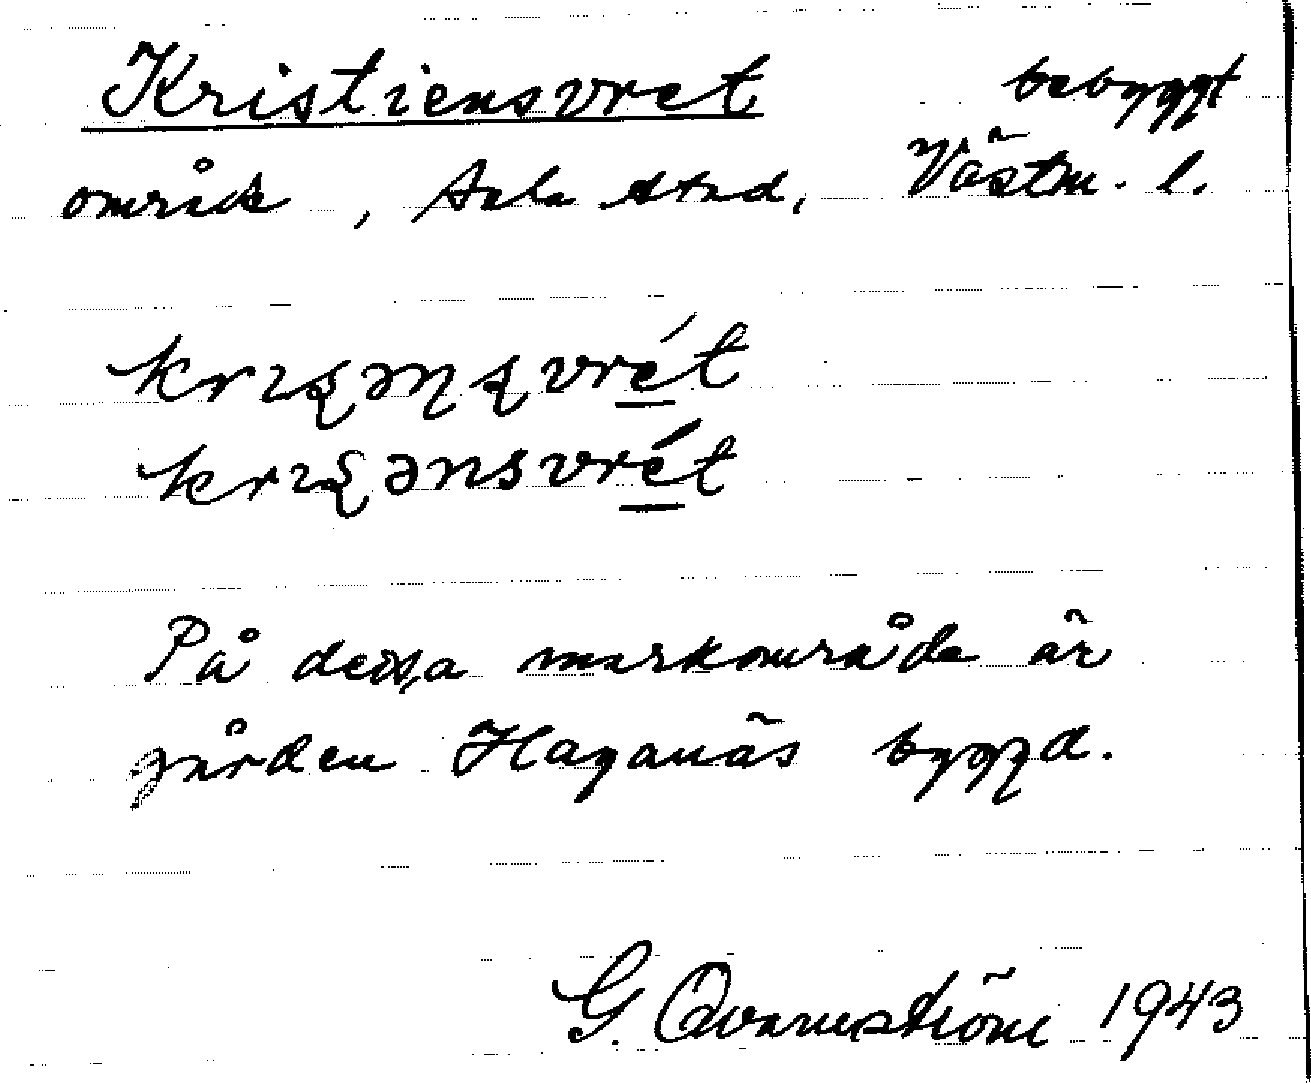 Kristiensvret bebyggt
område, Sala stad, Västm. l.
krɩʂəɳʂvrét
krɩʂənsvrét
På dessa markområde är
gården Haganäs byggd.
G. Qvarnström 1943